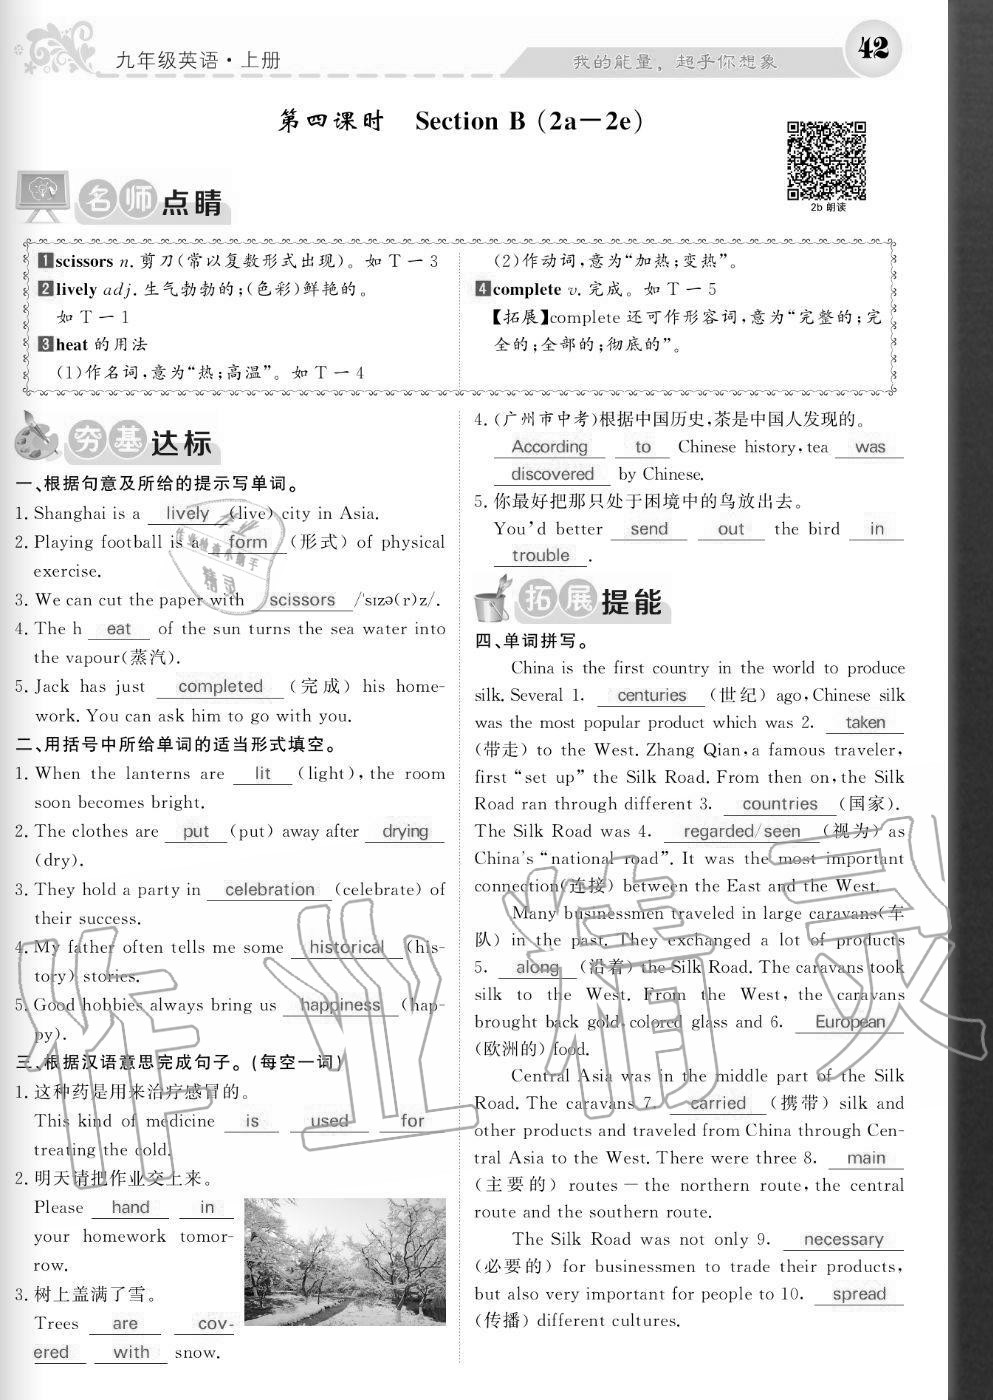 九年级英语·上册
我的能量，超乎你想象
42
第四课时 Section B（2a—2e）
2b 朗读
名师点睛
1 scissors n. 剪刀(常以复数形式出现)。如 T-3
2 lively adj. 生气勃勃的;(色彩)鲜艳的。
如 T-1
3 heat 的用法
(1)作名词,意为“热;高温”。如 T-4
(2)作动词,意为“加热;变热”。
4 complete v. 完成。如 T-5
【拓展】complete 还可作形容词,意为“完整的;完
全的;全部的;彻底的”。
夯基达标
一、根据句意及所给的提示写单词。
1. Shanghai is a lively (live) city in Asia.
2. Playing football is a form (形式) of physical
exercise.
3. We can cut the paper with scissors /ˈsɪzə(r)z/.
4. The h eat of the sun turns the sea water into
the vapour(蒸汽).
5. Jack has just completed (完成) his home-
work. You can ask him to go with you.
二、用括号中所给单词的适当形式填空。
1. When the lanterns are lit (light), the room
soon becomes bright.
2. The clothes are put (put) away after drying
(dry).
3. They hold a party in celebration (celebrate) of
their success.
4. My father often tells me some historical (his-
tory) stories.
5. Good hobbies always bring us happiness (hap-
py).
三、根据汉语意思完成句子。(每空一词)
1. 这种药是用来治疗感冒的。
This kind of medicine is used for
treating the cold.
2. 明天请把作业交上来。
Please hand in
your homework tomor-
row.
3. 树上盖满了雪。
Trees are cov-
ered with snow.
4. (广州市中考)根据中国历史,茶是中国人发现的。
According to Chinese history, tea was
discovered by Chinese.
5. 你最好把那只处于困境中的鸟放出去。
You'd better send out the bird in
trouble .
拓展提能
四、单词拼写。
China is the first country in the world to produce
silk. Several 1. centuries (世纪) ago, Chinese silk
was the most popular product which was 2. taken
(带走) to the West. Zhang Qian, a famous traveler,
first “set up” the Silk Road. From then on, the Silk
Road ran through different 3. countries (国家).
The Silk Road was 4. regarded/seen (视为) as
China's “national road”. It was the most important
connection(连接) between the East and the West.
Many businessmen traveled in large caravans(车
队) in the past. They exchanged a lot of products
5. along (沿着) the Silk Road. The caravans took
silk to the West. From the West, the caravans
brought back gold, colored glass and 6. European
(欧洲的) food.
Central Asia was in the middle part of the Silk
Road. The caravans 7. carried (携带) silk and
other products and traveled from China through Cen-
tral Asia to the West. There were three 8. main
(主要的) routes — the northern route, the central
route and the southern route.
The Silk Road was not only 9. necessary
(必要的) for businessmen to trade their products,
but also very important for people to 10. spread
(传播) different cultures.
作业精灵